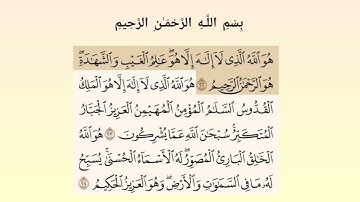 بِسْمِ اللَّهِ الرَّحْمَٰنِ الرَّحِيمِ
هُوَ ٱللَّهُ ٱلَّذِى لَآ إِلَٰهَ إِلَّا هُوَ ۖ عَٰلِمُ ٱلْغَيْبِ وَٱلشَّهَٰدَةِ ۖ
هُوَ ٱلرَّحْمَٰنُ ٱلرَّحِيمُ ٢٢ هُوَ ٱللَّهُ ٱلَّذِى لَآ إِلَٰهَ إِلَّا هُوَ ٱلْمَلِكُ
ٱلْقُدُّوسُ ٱلسَّلَٰمُ ٱلْمُؤْمِنُ ٱلْمُهَيْمِنُ ٱلْعَزِيزُ ٱلْجَبَّارُ
ٱلْمُتَكَبِّرُ ۚ سُبْحَٰنَ ٱللَّهِ عَمَّا يُشْرِكُونَ ٢٣ هُوَ ٱللَّهُ
ٱلْخَٰلِقُ ٱلْبَارِئُ ٱلْمُصَوِّرُ ۖ لَهُ ٱلْأَسْمَآءُ ٱلْحُسْنَىٰ ۚ يُسَبِّحُ
لَهُۥ مَا فِى ٱلسَّمَٰوَٰتِ وَٱلْأَرْضِ ۖ وَهُوَ ٱلْعَزِيزُ ٱلْحَكِيمُ ٢٤